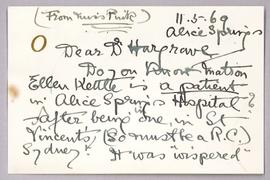 (From Miss Pink)
11.5.69
Alice Springs
Dear Dr Hargrave
Do you know Matron
Ellen Kettle is a patient
in Alice Springs Hospital?
After being one, in St
Vincent's (so must be a R.C.)
Sydney. It was "wispered"